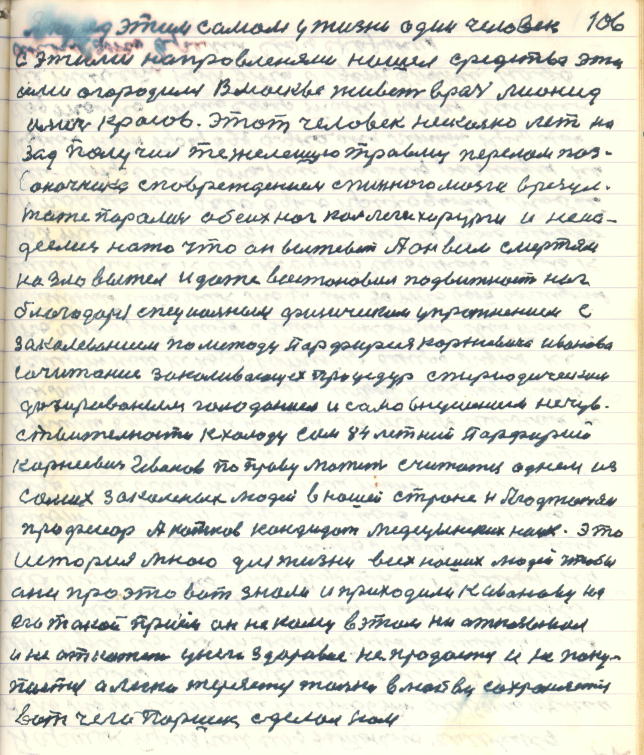 этим самом у жизни один человек 106
с этими направленями нашел средства эти
ими огородился В маскве живет врач лионид
красов. этот человек несколко лет на
зад получил тежелешую травму перелом поз-
воночника с повреждением спинного мозга в резул.
тате паралич обеих ног коллеги хирурги и нена-
деелис на то что он выживет А он всем смертям
на зло выжел и даже востановил подвижност ног
благодаря специалным физическим упражнением с
закаливанием по методу Парфирия корневича иванова
сочитание закаливающих процедур с периодическим
дозированным голоданием и самовнушением нечув-
ствителности к холоду Сам 84 летний Парфирий
Карнеевич Иванов по праву может считатся одним из
самих закаленых людей в нашей стране
професор А катков кандидат медецынских наук. Это
история много для жизни всех наших людей чтобы
ани про это вот знали и приходили к иванову на
его такой приём он некому в этом ни
и не откажет у него здоровие не продается и не поку-
пается а легко теряется и в любви сохраняется
вот чего Паршек сделал нам